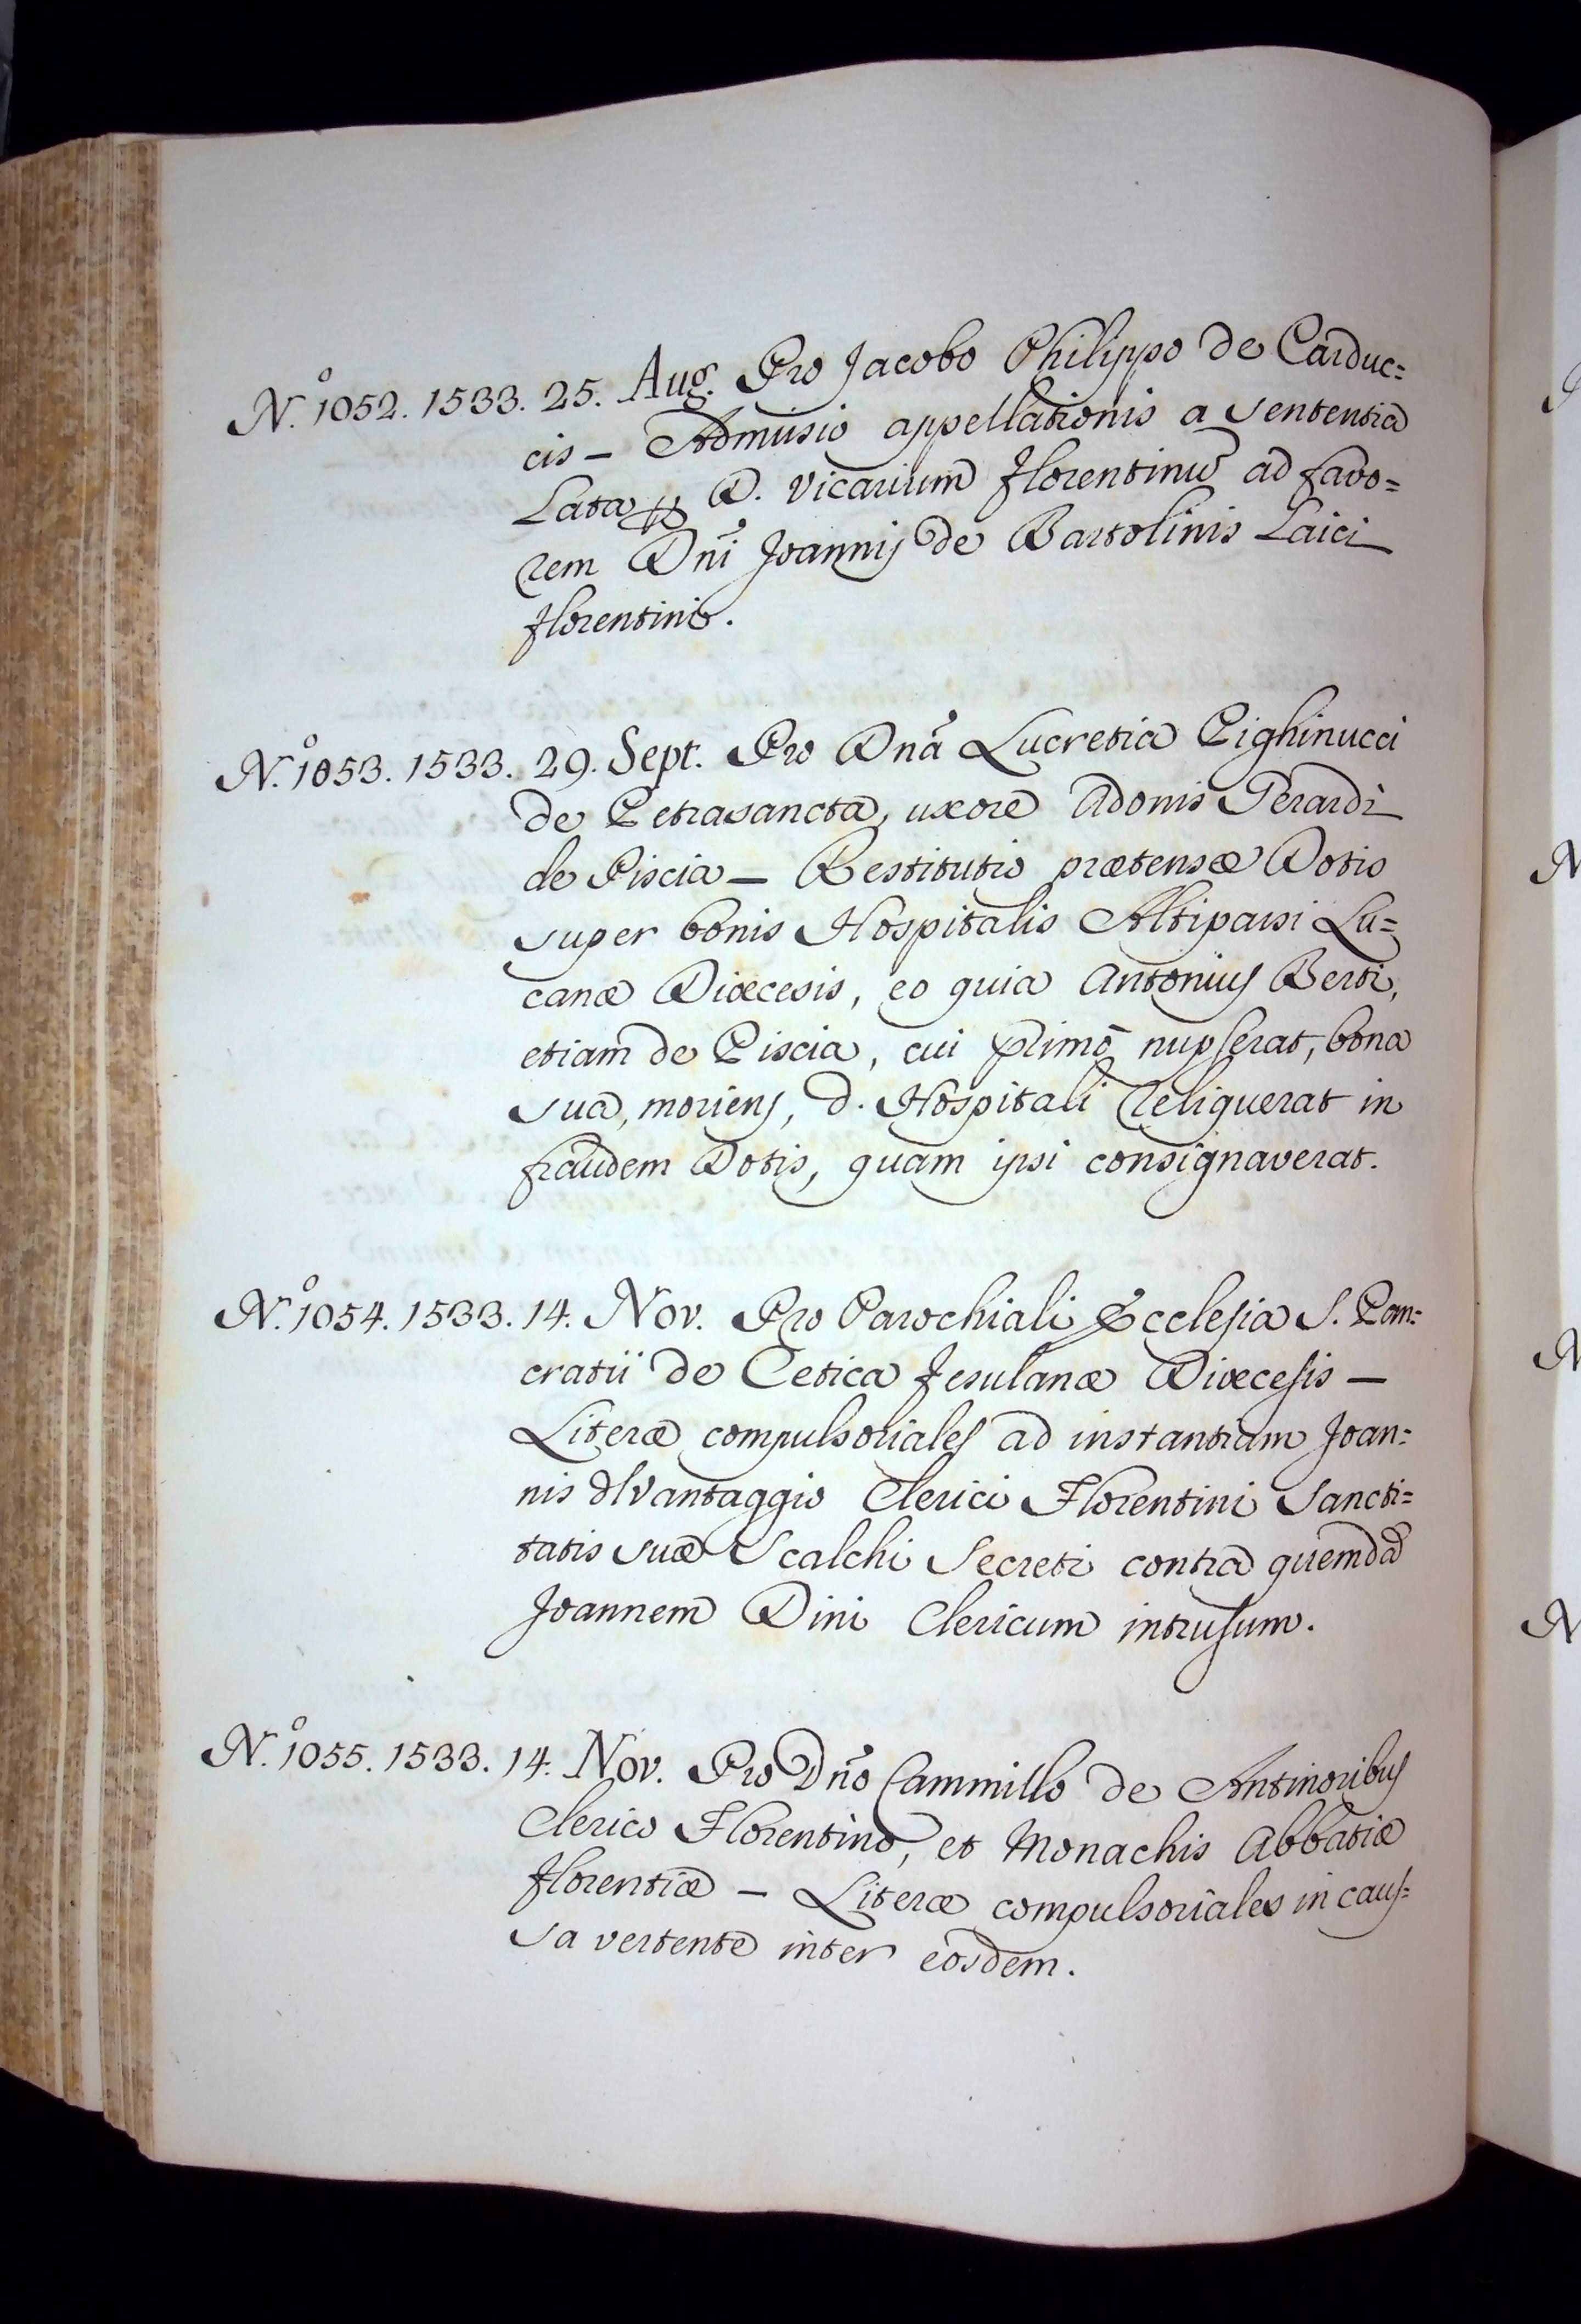 N.º 1052. 1533. 25. Aug. Pro Jacobo Philippo de Carduc=
cis — Admissio appellationis a sententia
Lata ꝑ D. Vicarium Florentinũ ad favo=
rem Dñi Joannis de Bartolinis Laici
Florentini.
N.º 1053. 1533. 29. Sept. Pro Dnã Lucretia Pighinucci
de Petrasancta, uxore Adonis Perardi
de Piscia — Restitutio prætensæ Dotis
super bonis Hospitalis Altipassi Lu=
canæ Diœcesis, eo quia Antonius Berti,
etiam de Piscia, cui primò nupserat, bona
sua, moriens, d. Hospitali reliquerat in
fraudem Dotis, quam ipsi consignaverat.
N.º 1054. 1533. 14. Nov. Pro Parochiali Ecclesia S. Pan=
cratii de Cetica Fesulanæ Diœcesis —
Literæ compulsoriales ad instantiam Joan=
nis Avantaggio Clerici Florentini Sancti=
tatis suæ Scalchi Secreti contra quemdã
Joannem Dini Clericum intrusum.
N.º 1055. 1533. 14. Nov. Pro Dño Cammillo de Antinoribus
Clerico Florentino, et Monachis Abbatiæ
Florentiæ — Literæ compulsoriales in caus=
sa vertente inter eosdem.